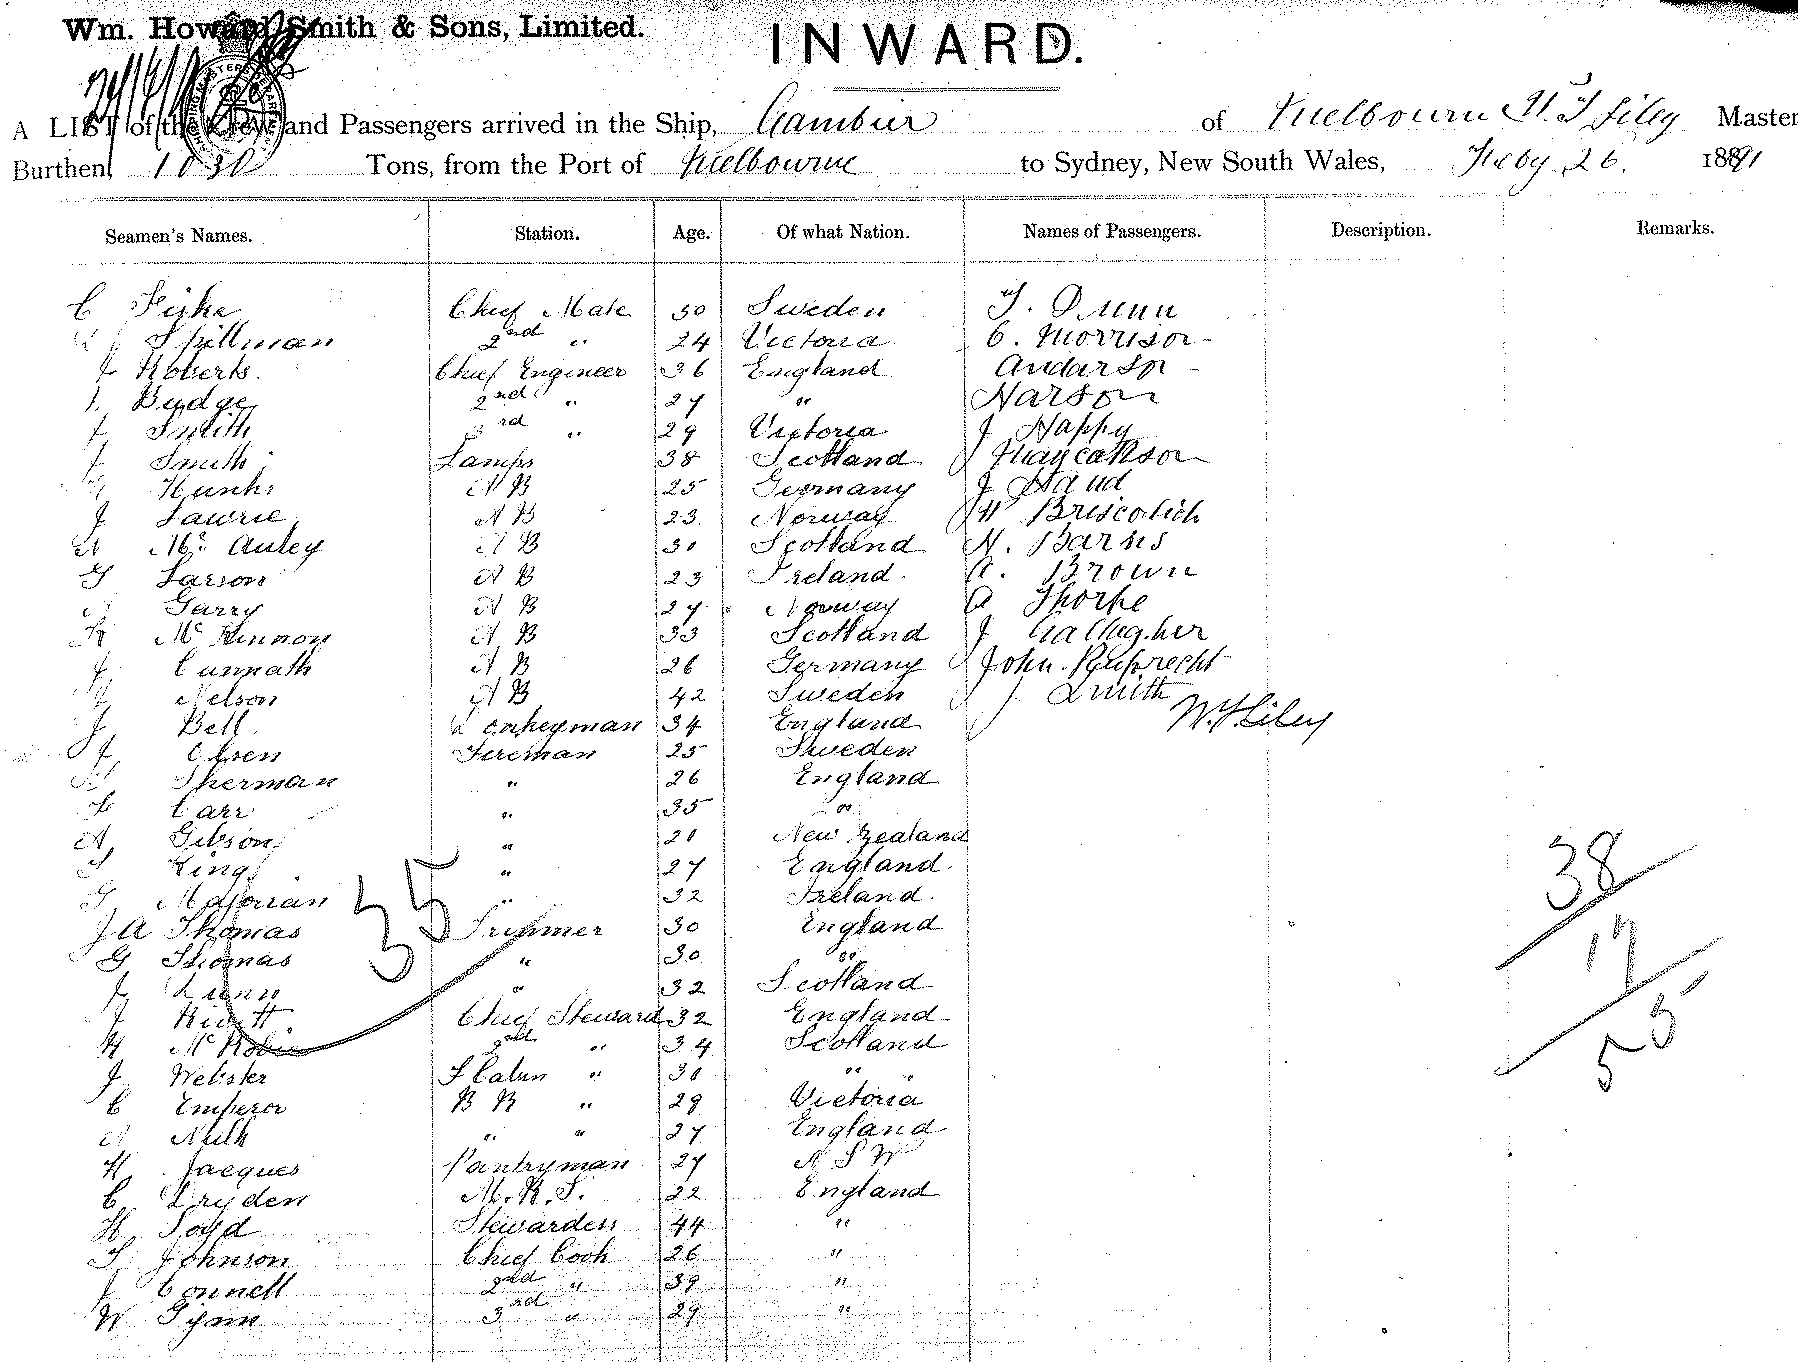 Wm. Howard Smith & Sons, Limited.
INWARD.
A LIST of the Crew and Passengers arrived in the Ship, Gambier of Melbourne W. T Liley Master
Burthen, 1030 Tons, from the Port of Melbourne to Sydney, New South Wales, Feby 26. 1891
Seamen's Names. Station. Age. Of what Nation. Names of Passengers. Description. Remarks.
C Chief Mate 30 Sweden T. Dunn
Spillman 2nd " 24 Victoria C. Morrison
J Roberts. Chief Engineer 36 England Anderson
Budge 2nd " 27 " Narson
J Smith 3rd " 29 Victoria J Happy
J Smith Lamps 38 Scotland J
A B 25 Germany J Hand
J Lawrie A B 23 Norway W Briscolich
Mc Auley A B 30 Scotland N. Barns
G Larson A B 23 Ireland. A. Brown
Garry A B 27 Norway A Thorpe
Mc Kinnon A B 33 Scotland J Gallegher
J A B 26 Germany John Ruprecht
Nelson A B 42 Sweden J Smith
J Bell Donkeyman 34 England W.T Liley
J Olsen Fireman 25 Sweden
Sherman " 26 England
Carr " 35 "
A Gibson " New Zealand
King " 27 England
" 32 Ireland.
35
J A Thomas Trimmer 30 England
G Thomas " 30 "
38
J Dunn " 32 Scotland
17
J Chief Steward 32 England
55
H Mc Robie 2nd " 34 Scotland
J Webster F Cabin " 30 " "
C Emperor B R " 29 Victoria
A " " 27 England
H Jacques Pantryman 27 N S W
C Dryden M. R. S. 22 England
H Stewardess 44 "
T Johnson Chief Cook 26 "
J Connell 2nd " 39 "
W Flynn 3rd " 29 "